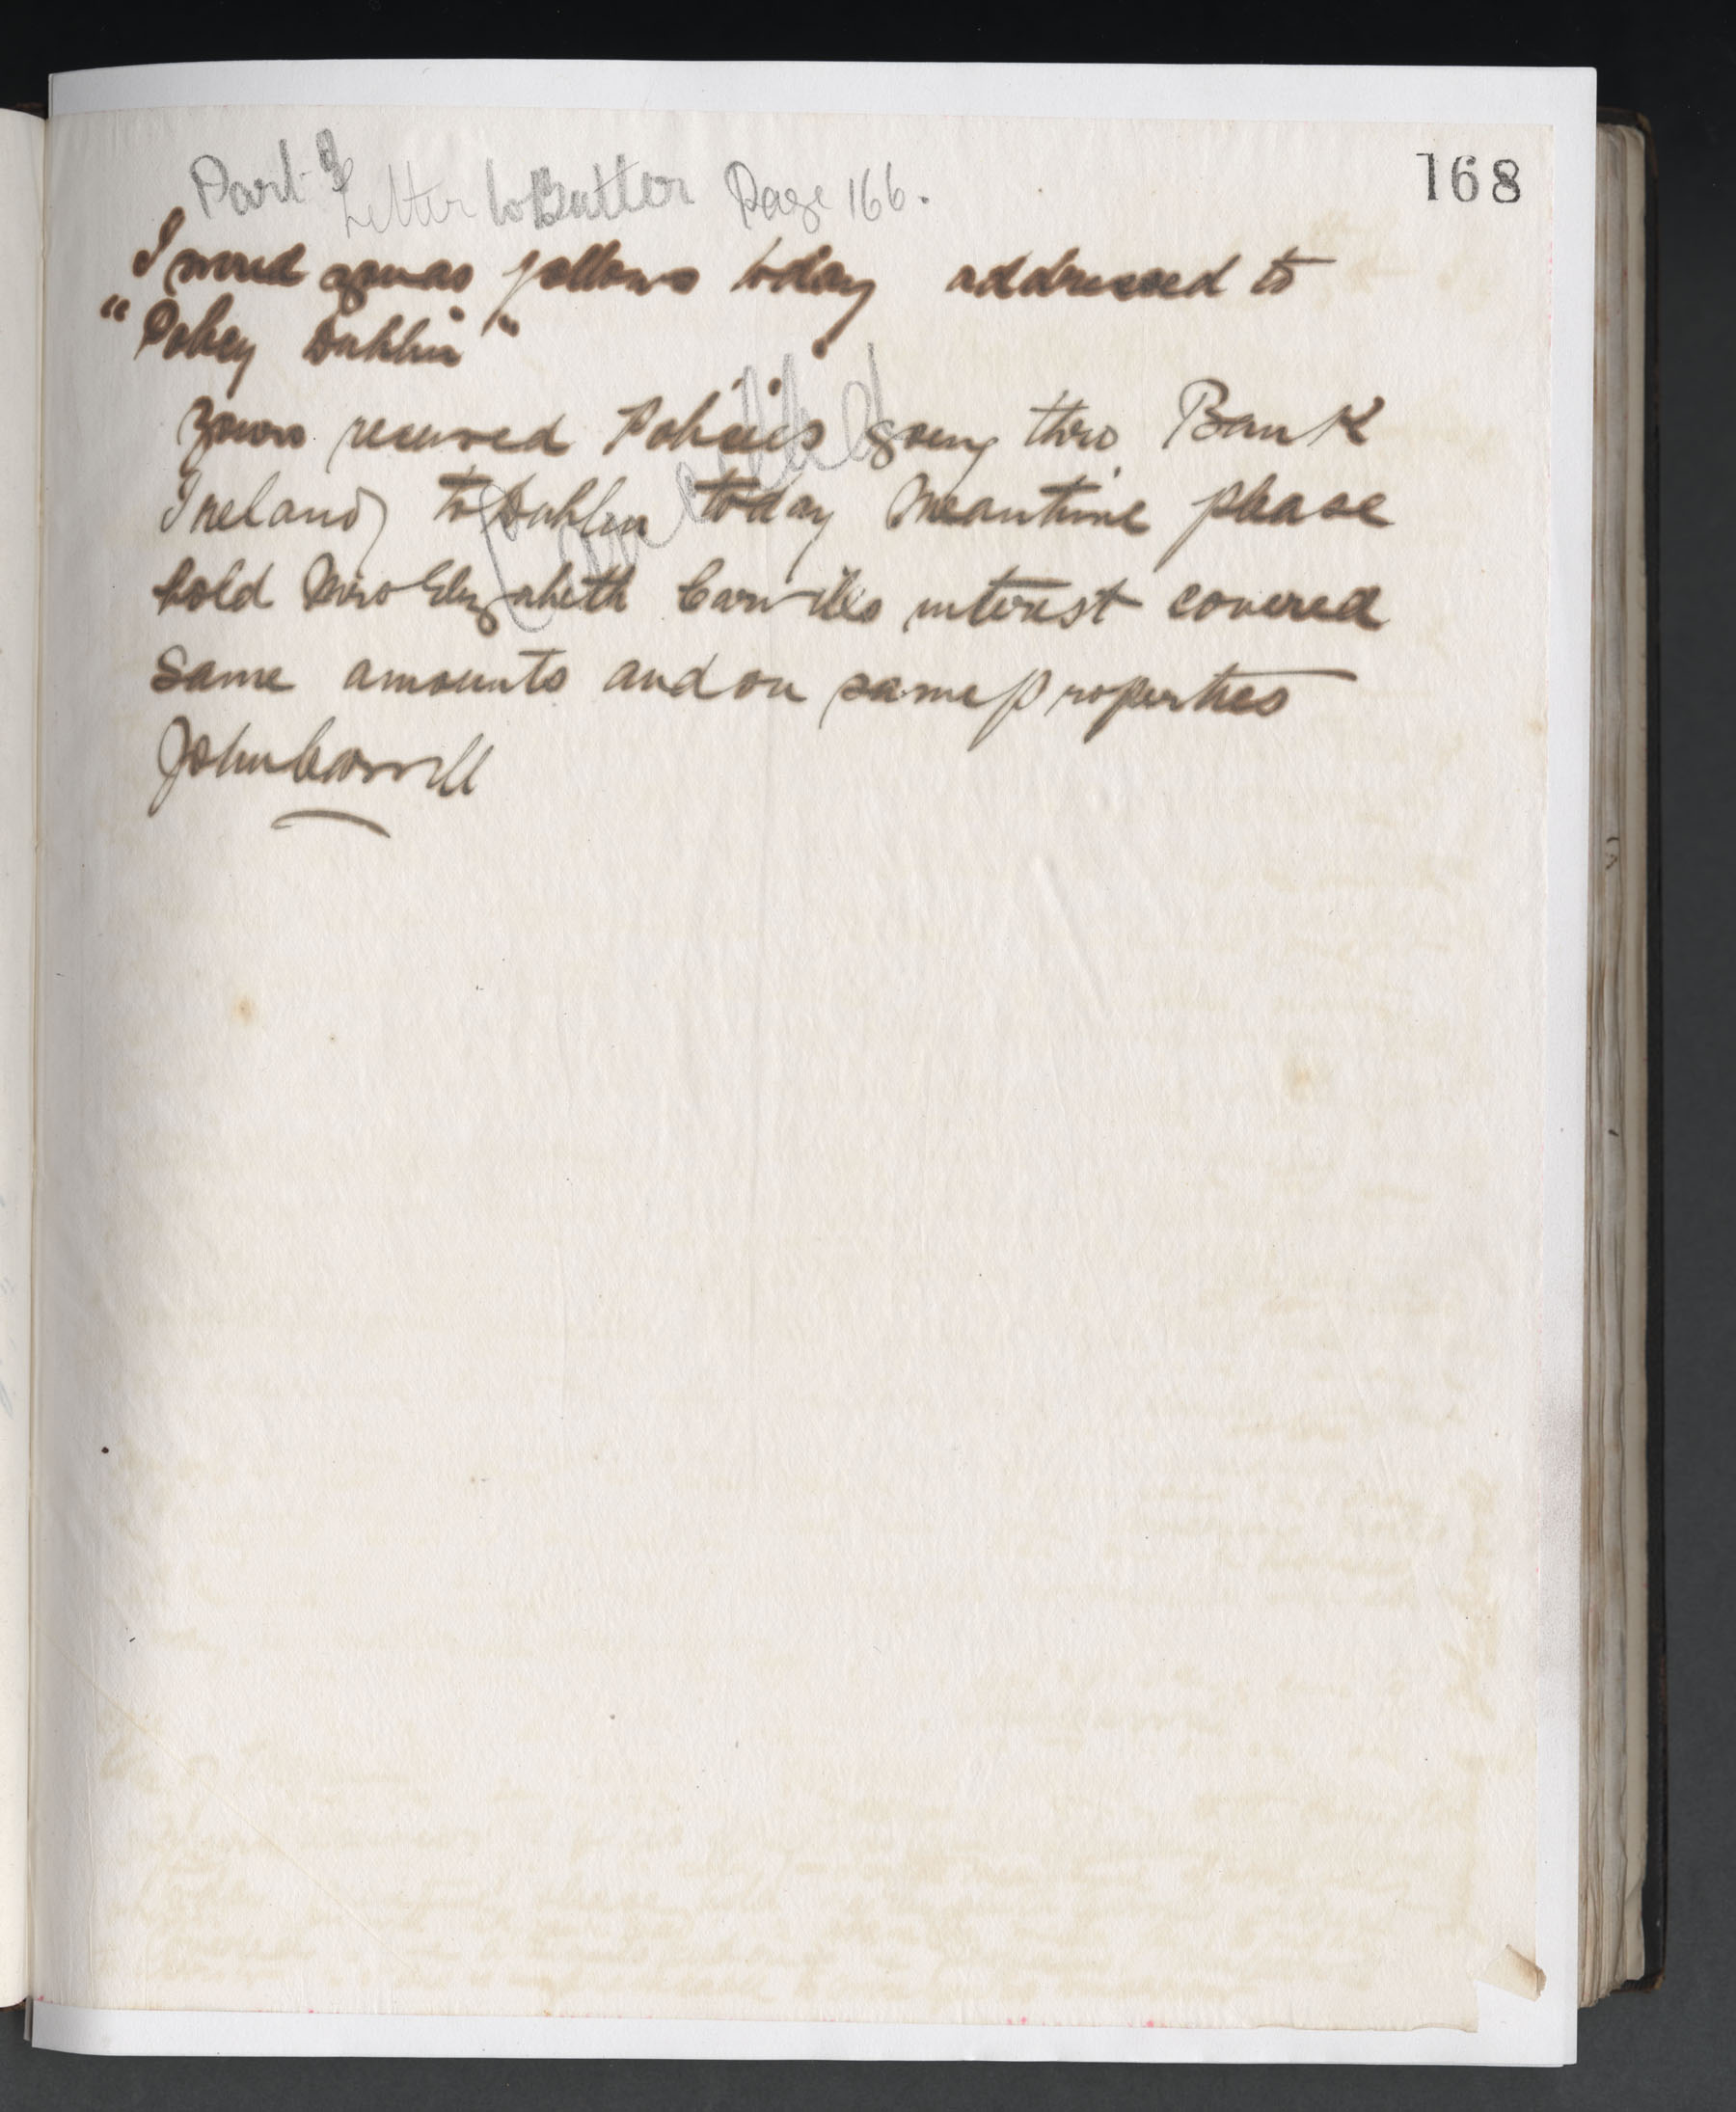 168
Part of Letter to Butter Page 166.
I wired you as follows today addressed to
"Policy Dublin"
Yours received Policies going thro Bank
Ireland to Dublin today Meantime please
hold Mrs Elizabeth Carvills interest covered
same amounts and on same properties
John Carvill
Cancelled